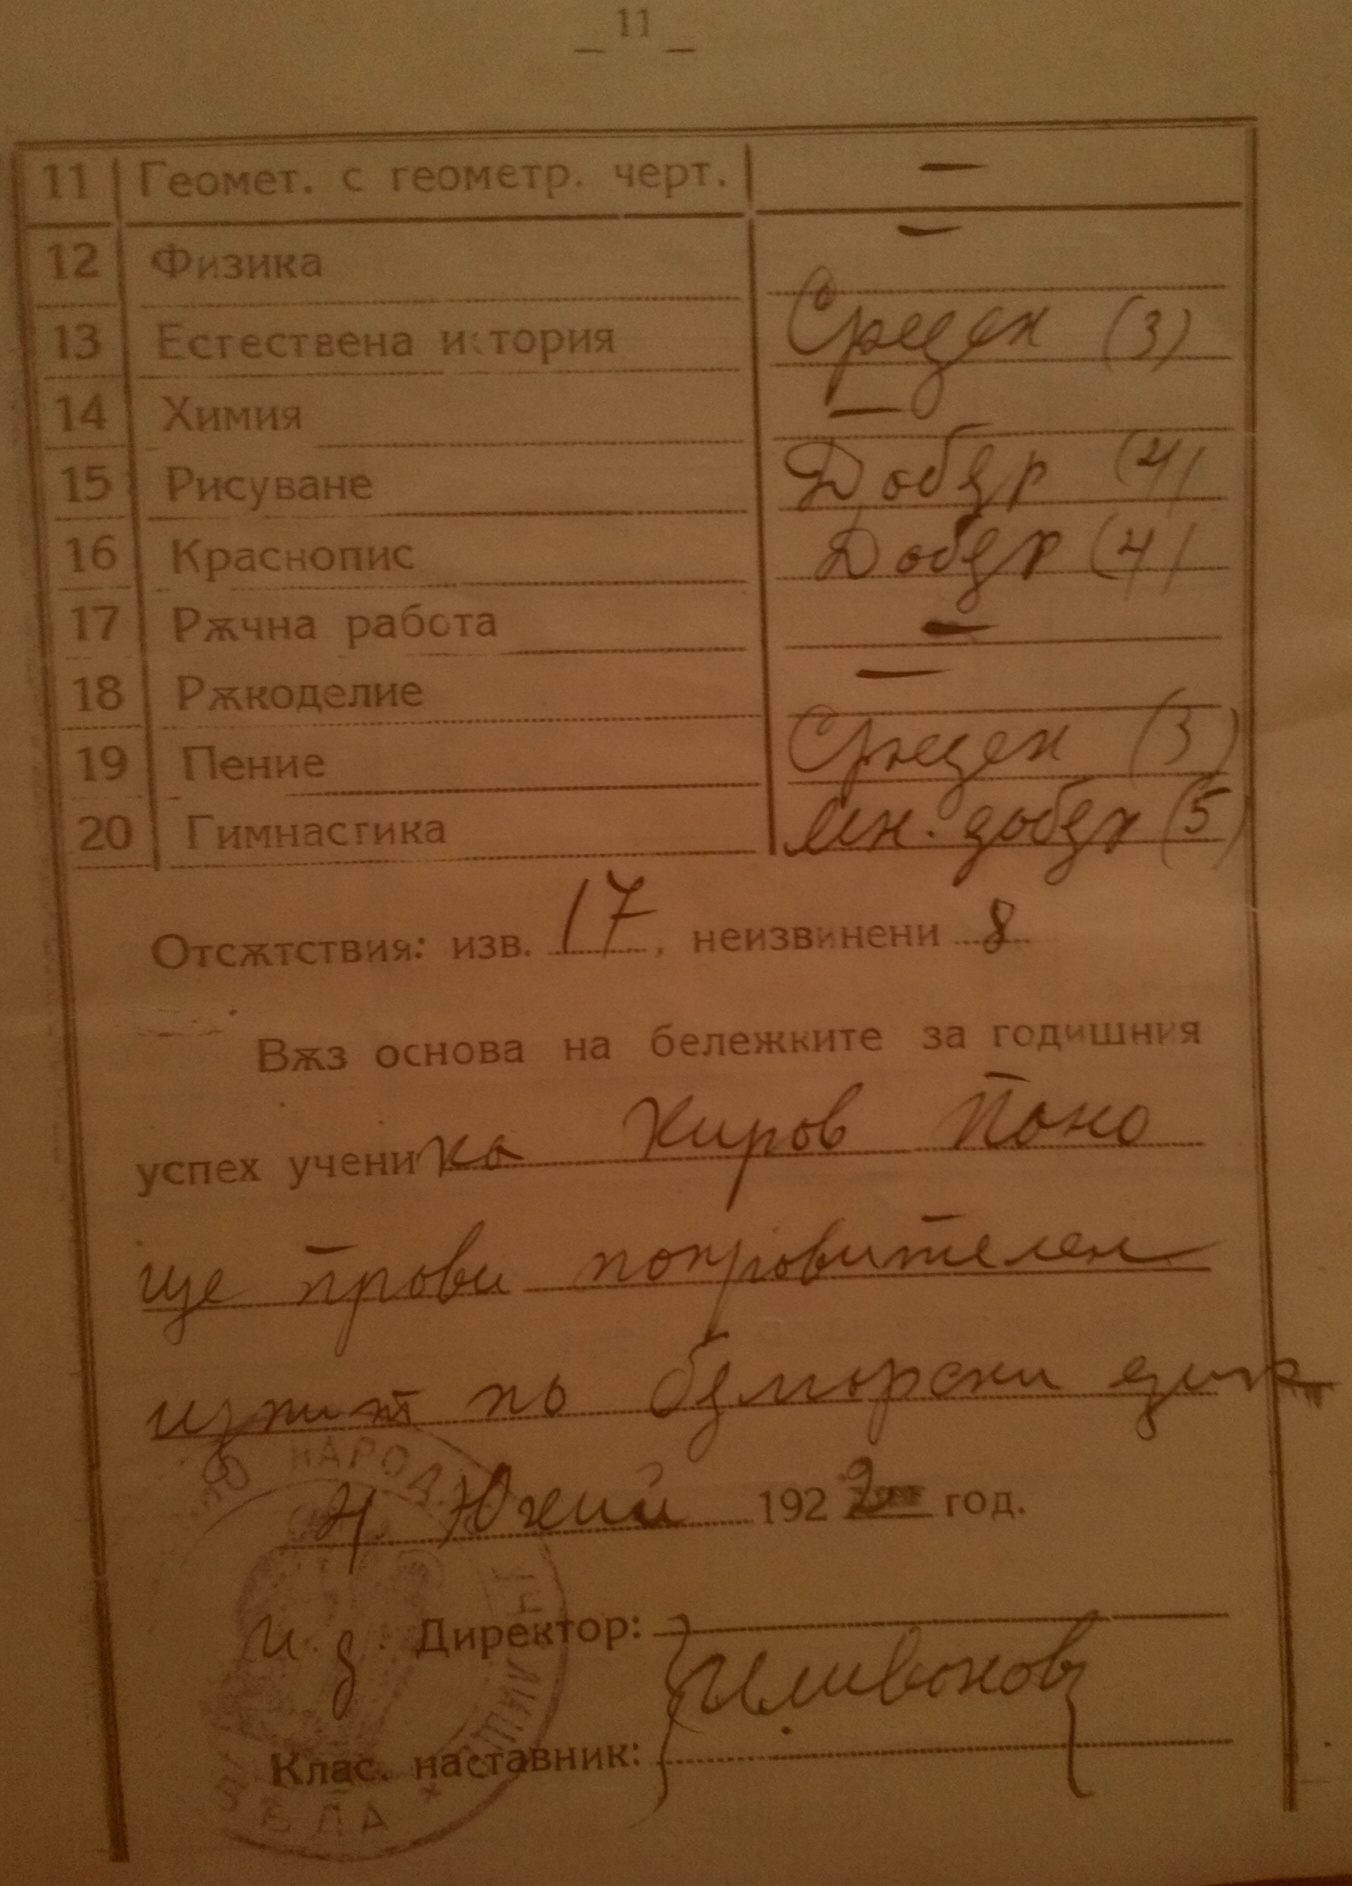 _ 11 _
11 Геомет. с геометр. черт. —
12 Физика —
13 Естествена история Среден (3)
14 Химия —
15 Рисуване Добър (4)
16 Краснопис Добър (4)
17 Рѫчна работа —
18 Рѫкоделие —
19 Пение Среден (3)
20 Гимнастика Мн. добър (5)
Отсѫтствия: изв. 17, неизвинени 8
Вѫз основа на бележките за годишния
успех ученика Киров Пано
ще прави поправителен
изпит по български език
4. Юний 1922 год.
И. д. Директор:
Клас. наставник:
НАРОД.
УЧИЛИЩ